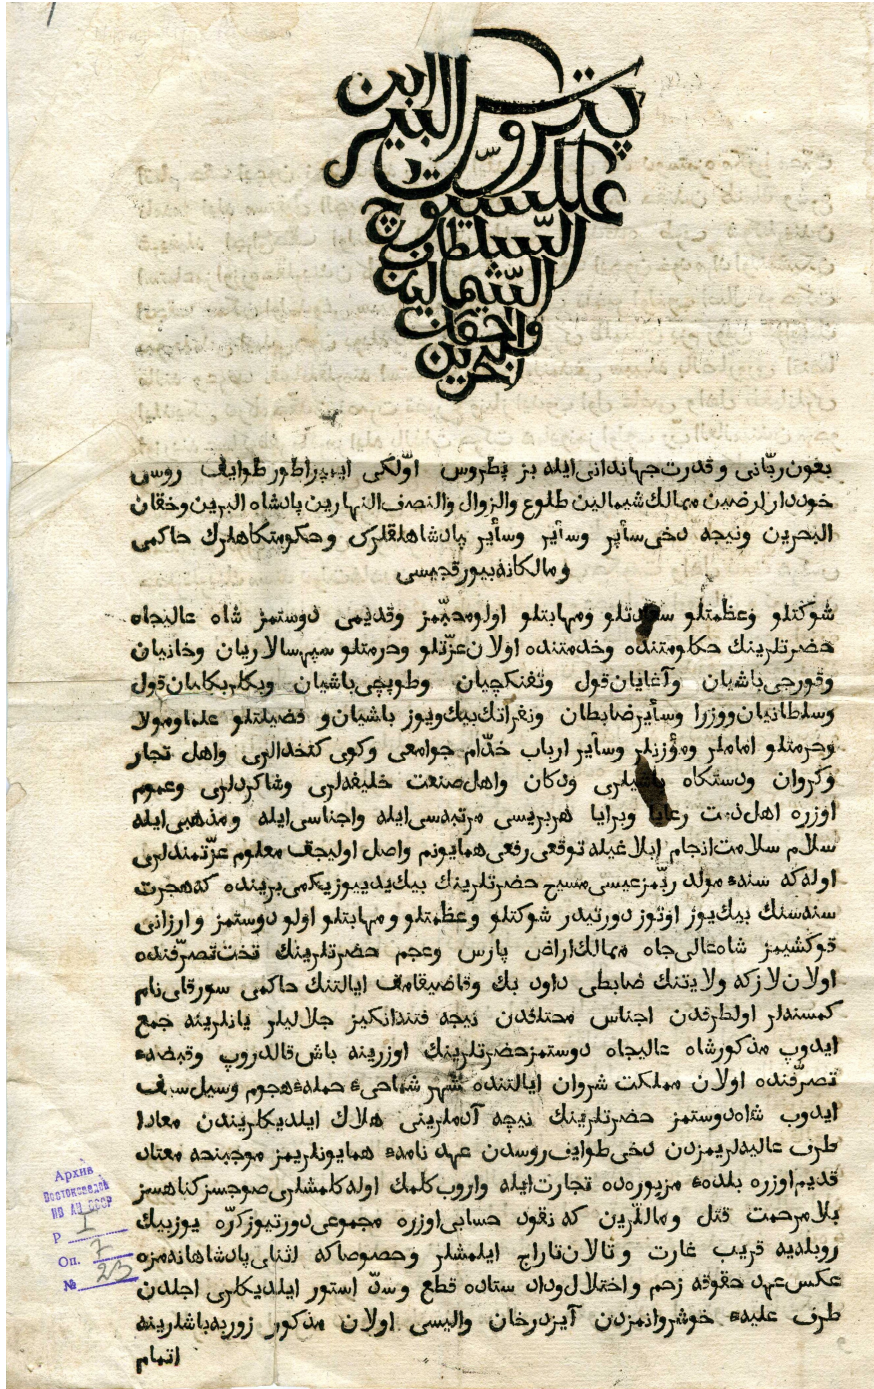 پتروس البير ابن
عللكسيوچ
السّلطان
الشّماليين
واخقان
البحرين
بعون ربّانى و قدرت جهاندانى ايله بز پطروس اوّلكى ايمپراطور طوايف روس
خوددار ارضين ممالك شيمالين طلوع والزوال والنصف النهارين پادشاه البرين وخقان
البحرين ونيجه دخى سأير وسأير وسأير پادشاهلقلرك وحكومتكاهلرك حاكمى
ومالكانه بيورقجيسى
شوكتلو وعظمتلو ومهابتلو اولو محبّمز وقديمى دوستمز شاه عاليجاه
حضرتلرينك حكاومتنده وخدمتنده اولان عزّتلو وحرمتلو سپهسالاريان وخانيان
وقورجى باشيان وآغايان قول وتفنكچيان وطوپچى باشيان وبكلربكايان قول
وسلطانيان ووزرا وسأير ضابطان ونفرانك بيك ويوز باشيان و فضيلتلو علما ومولا
وحرمتلو اماملر ومؤزنلر وسأير ارباب خدّام جوامعى وكوى كتخدالرى واهل تجار
وكروان ودستكاه ودكان واهل صنعت خليفه لرى وشاكردلرى وعموم
اوزره اهل ذمت رعايا وبرايا هر بريسى مرتبه سى ايله واجناسى ايله ومذهبى ايله
سلام سلامت انجام ابلاغيله توقعى رفعى همايونم واصل اوليجق معلوم عزّتمندلرى
اوله كه سنهء مولد ربّمز عيسى مسيح حضرتلرينك بيك يديوز يكرمى برينده كه هجرت
سنه سنك بيك يوز اوتوز دورتيدر شوكتلو وعظمتلو ومهابتلو اولو دوستمز وارزانى
قوكشيمز شاه عالى جاه ممالك اراض پارس وعجم حضرتلرينك تخت تصرّفنده
اولان لازكه ولايتنك ضابطى داود بك وقاضيقامق ايالتنك حاكمى سورقاى نام
كمسنه لر اولطرفدن اجناس مختلفدن نيجه فتنه انكيز جلاليلر يانلرينه جمع
ايدوپ مذكور شاه عاليجاه دوستمز حضرتلرينك اوزرينه باش قالدروپ وقبضهء
تصرّفنده اولان مملكت شروان ايالتنده شهر شماحىء حملهء هجوم وسيل سيف
ايدوب شاه دوستمز حضرتلرينك نيچه آدملرينى هلاك ايلديكلريندن معادا
طرف عاليه لريمزدن دخى طوايف روسدن عهد نامهء همايونلريمز موجبنجه معتاد
قديم اوزره بلدهء مزبورده تجارت ايله واروب كلمك اوله كلمشلرى صوجسز كناهسز
بلا مرحمت قتل وماللرين كه نقود حسابى اوزره مجموعى دورتيوز كرّه يوز بيك
روبله يه قريب غارت و تالان تاراج ايلمشلر وحصوصا كه لثناى پادشاهانه مزه
عكس عهد حقوقه زحم واختلال وداد ستاده قطع وسدّ استور ايلديكلرى اجلدن
طرف عليهء خوشروانمزدن آيزدرخان واليسى اولان مذكور زوربه باشلرينه
اتمام
Архив
Востоковедов
ИВ АН СССР
Р I
Оп. 7
№ 23